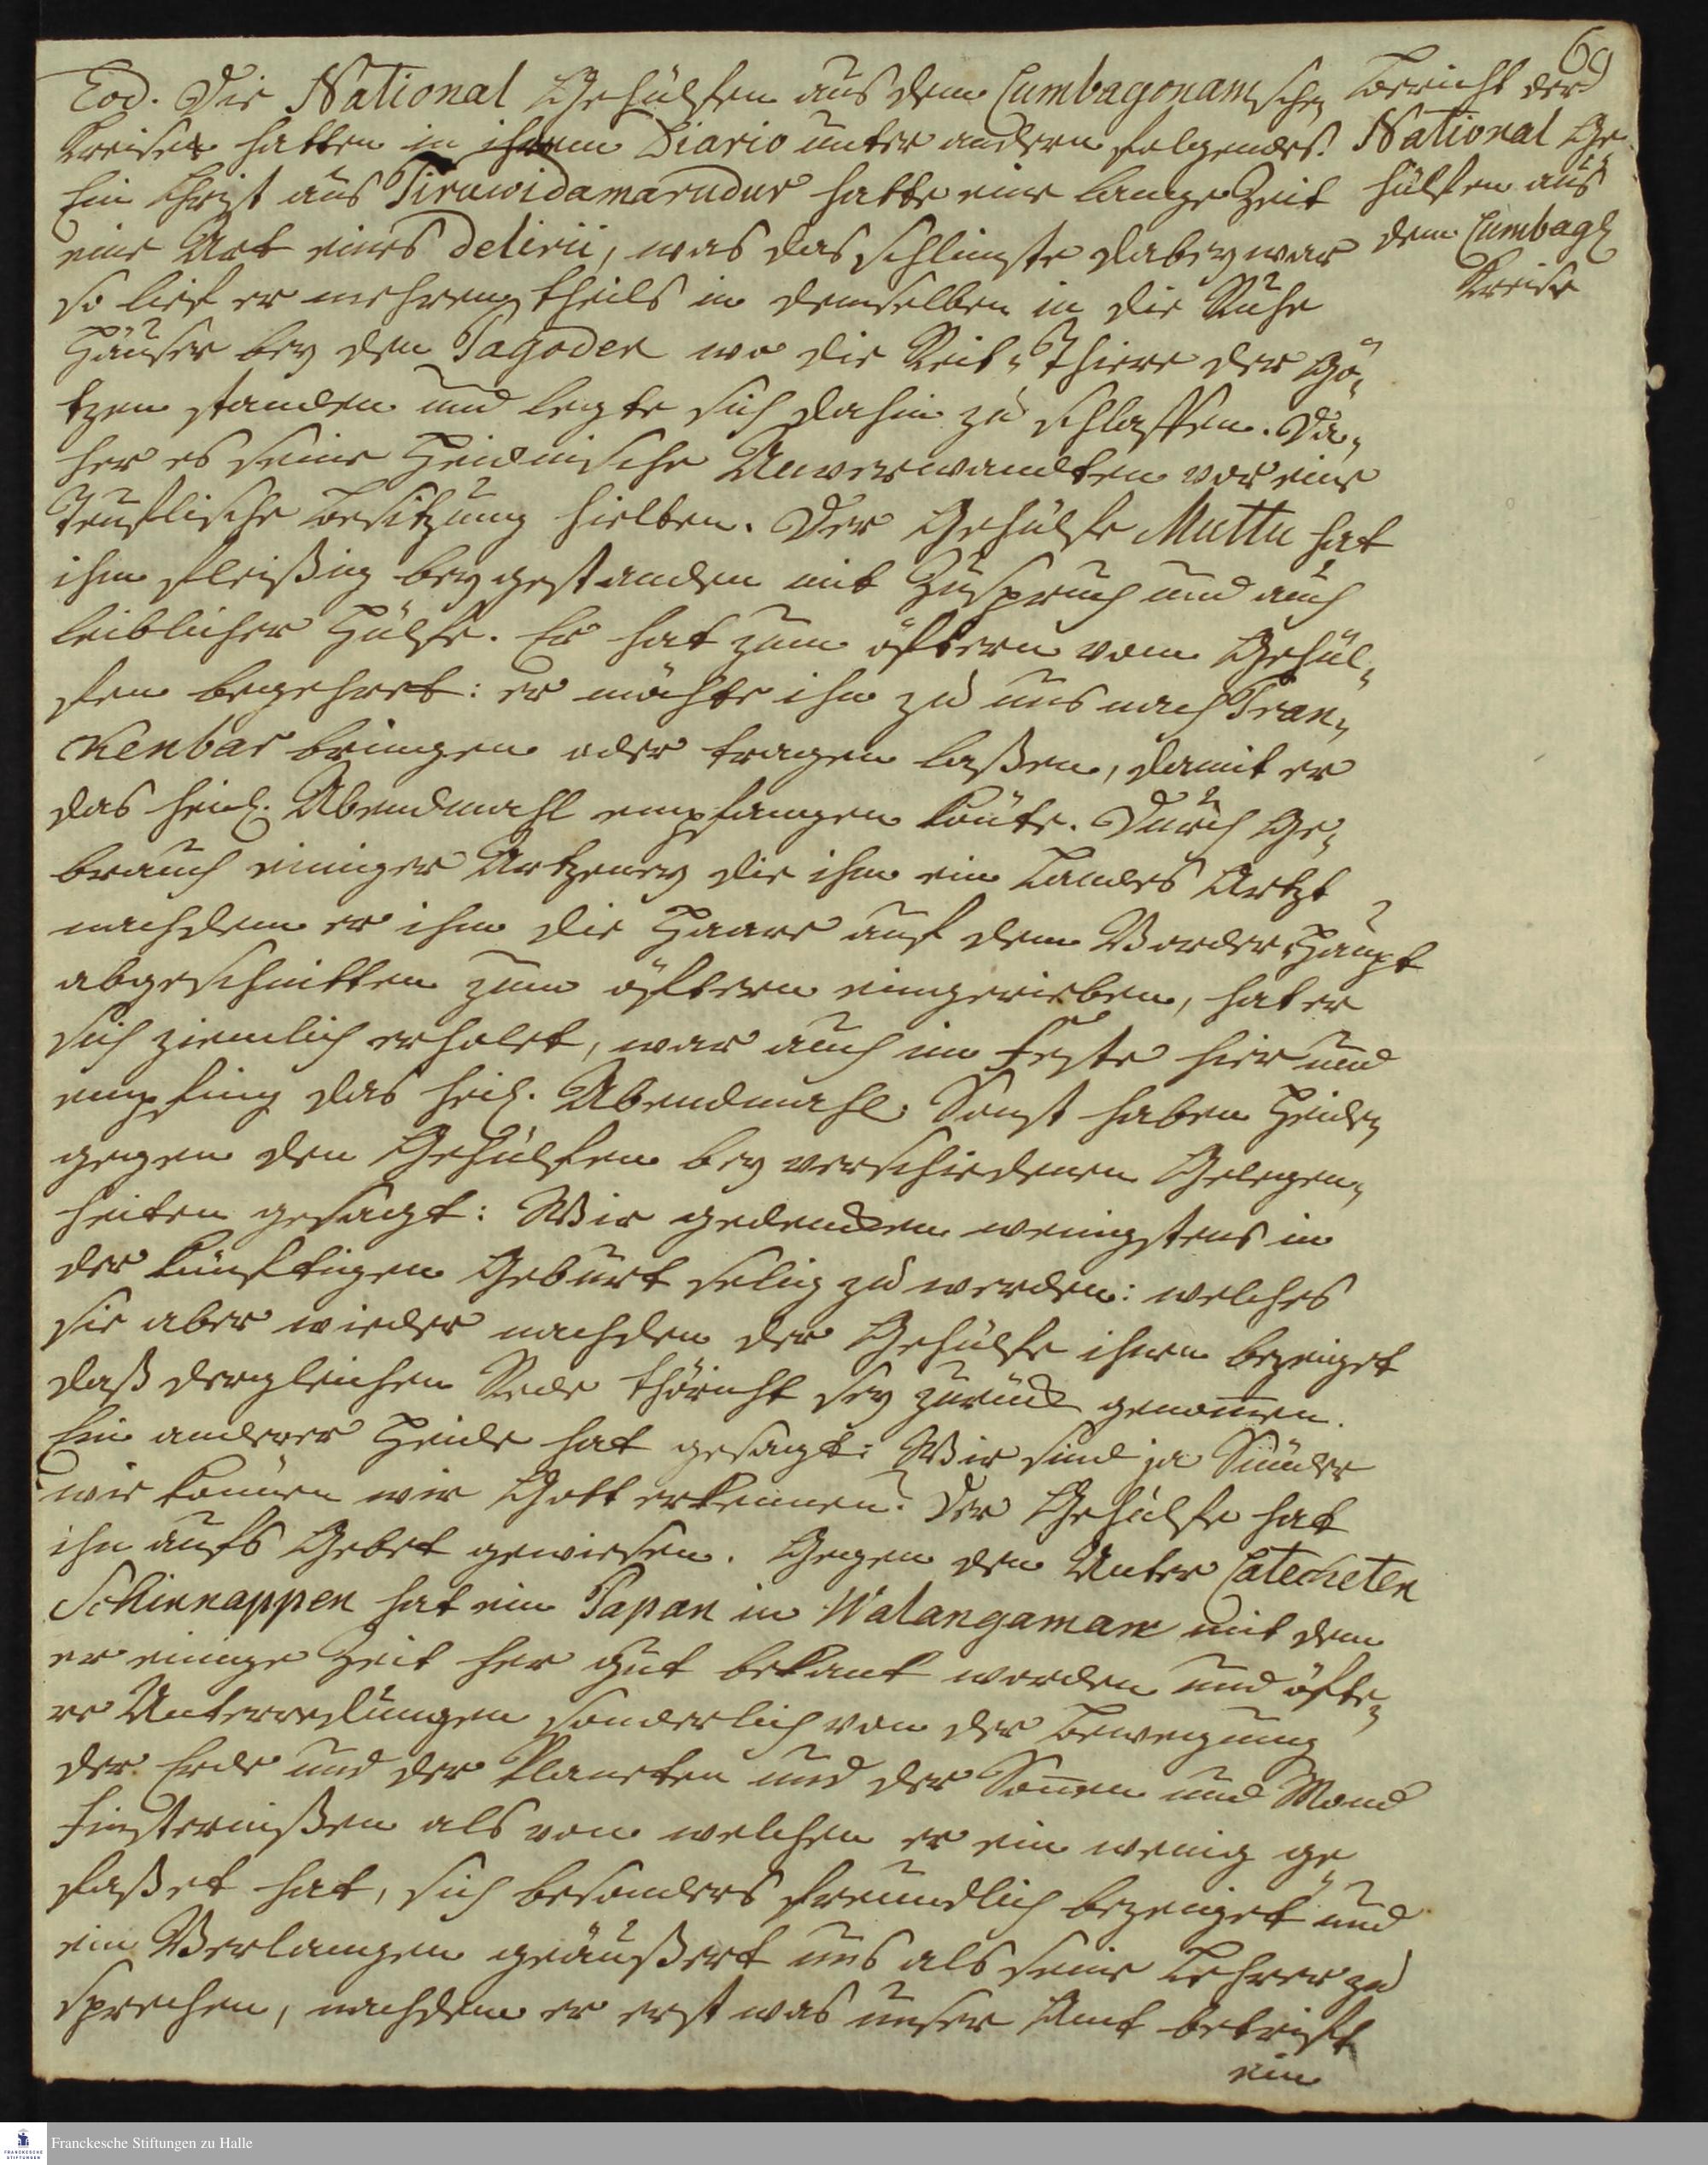 69
Eod. Die National Gehülfen aus dem Cumbagonamschen
Kreises hatten in ihrem Diario unter andern folgendes.
Ein Christ aus Tiruwidamarudur hatte eine lange Zeit
eine Art eines delirii, was das schlimste dabey war
so lief er mehrentheils in demselben in die Ruhe
Häuser bey den Pagoden wo die Reit-Thiere der Gö-
tzen standen und legte sich dahin zu schlaffen. Da-
her es seine Heidnische Anverwandten vor eine
Teuflische Besitzung hielten. Der Gehülfe Muttu hat
ihm fleißig beygestanden mit Zuspruch und auch
leiblicher Hülfe. Er hat zum öftern vom Gehül-
fen begehret: er möchte ihn zu uns nach Tran-
kenbar bringen oder tragen laßen, damit er
das heil. Abendmahl empfangen könte. Durch Ge-
brauch einiger Artzeney die ihm ein Landes Artzt
nachdem er ihm die Haare auf dem Vorder-Haupt
abgeschnitten zum öftern eingerieben, hat er
sich ziemlich erholet, war auch im Feste hier und
empfing das heil. Abendmahl. Sonst haben Heiden
gegen den Gehülfen bey verschiedenen Gelegen-
heiten gesagt: Wir gedencken wenigstens in
der künftigen Geburt selig zu werden: welches
sie aber wieder nachdem der Gehülfe ihnen bezeiget
daß dergleichen Rede thöricht sey zurück genom̄en.
Ein anderer Heide hat gesagt: Wir sind ja Sünder
wie können wir Gott erkennen? Der Gehülfe hat
ihn aufs Gebet gewiesen. Gegen den Unter Catecheten
Schinnappen hat ein Papan in Walangaman mit dem
er einige Zeit her gut bekant worden und öfte-
re Unterredungen sonderlich von der Bewegung
der Erde und der Planeten und der Son̄en und Mond
Finsternißen als von welchen er ein wenig ge
faßet hat, sich besonders freundlich bezeiget und
ein Verlangen geäußert uns als seine Lehrer zu
sprechen, nachdem er erst was unser Amt betrift
ein
Bericht der
National Ge-
hülfen aus
dem Cumbag.
Kreise
Franckesche Stiftungen zu Halle
FRANCKESCHE
STIFTUNGEN